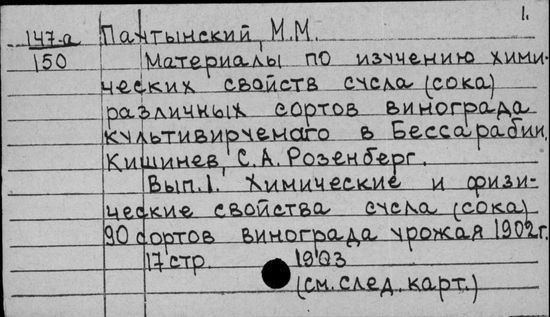 1.
147-а Пантынский, М.М.
150 Материалы по изучению хими-
ческих свойств сусла (сока)
различных сортов винограда
культивируемаго в Бессарабии.
Кишинев, С.А. Розенберг.
Вып.1. Химические и физи-
ческие свойства сусла (сока)
90 сортов винограда урожая 1902г.
17 стр. 1903
(см. след. карт.)